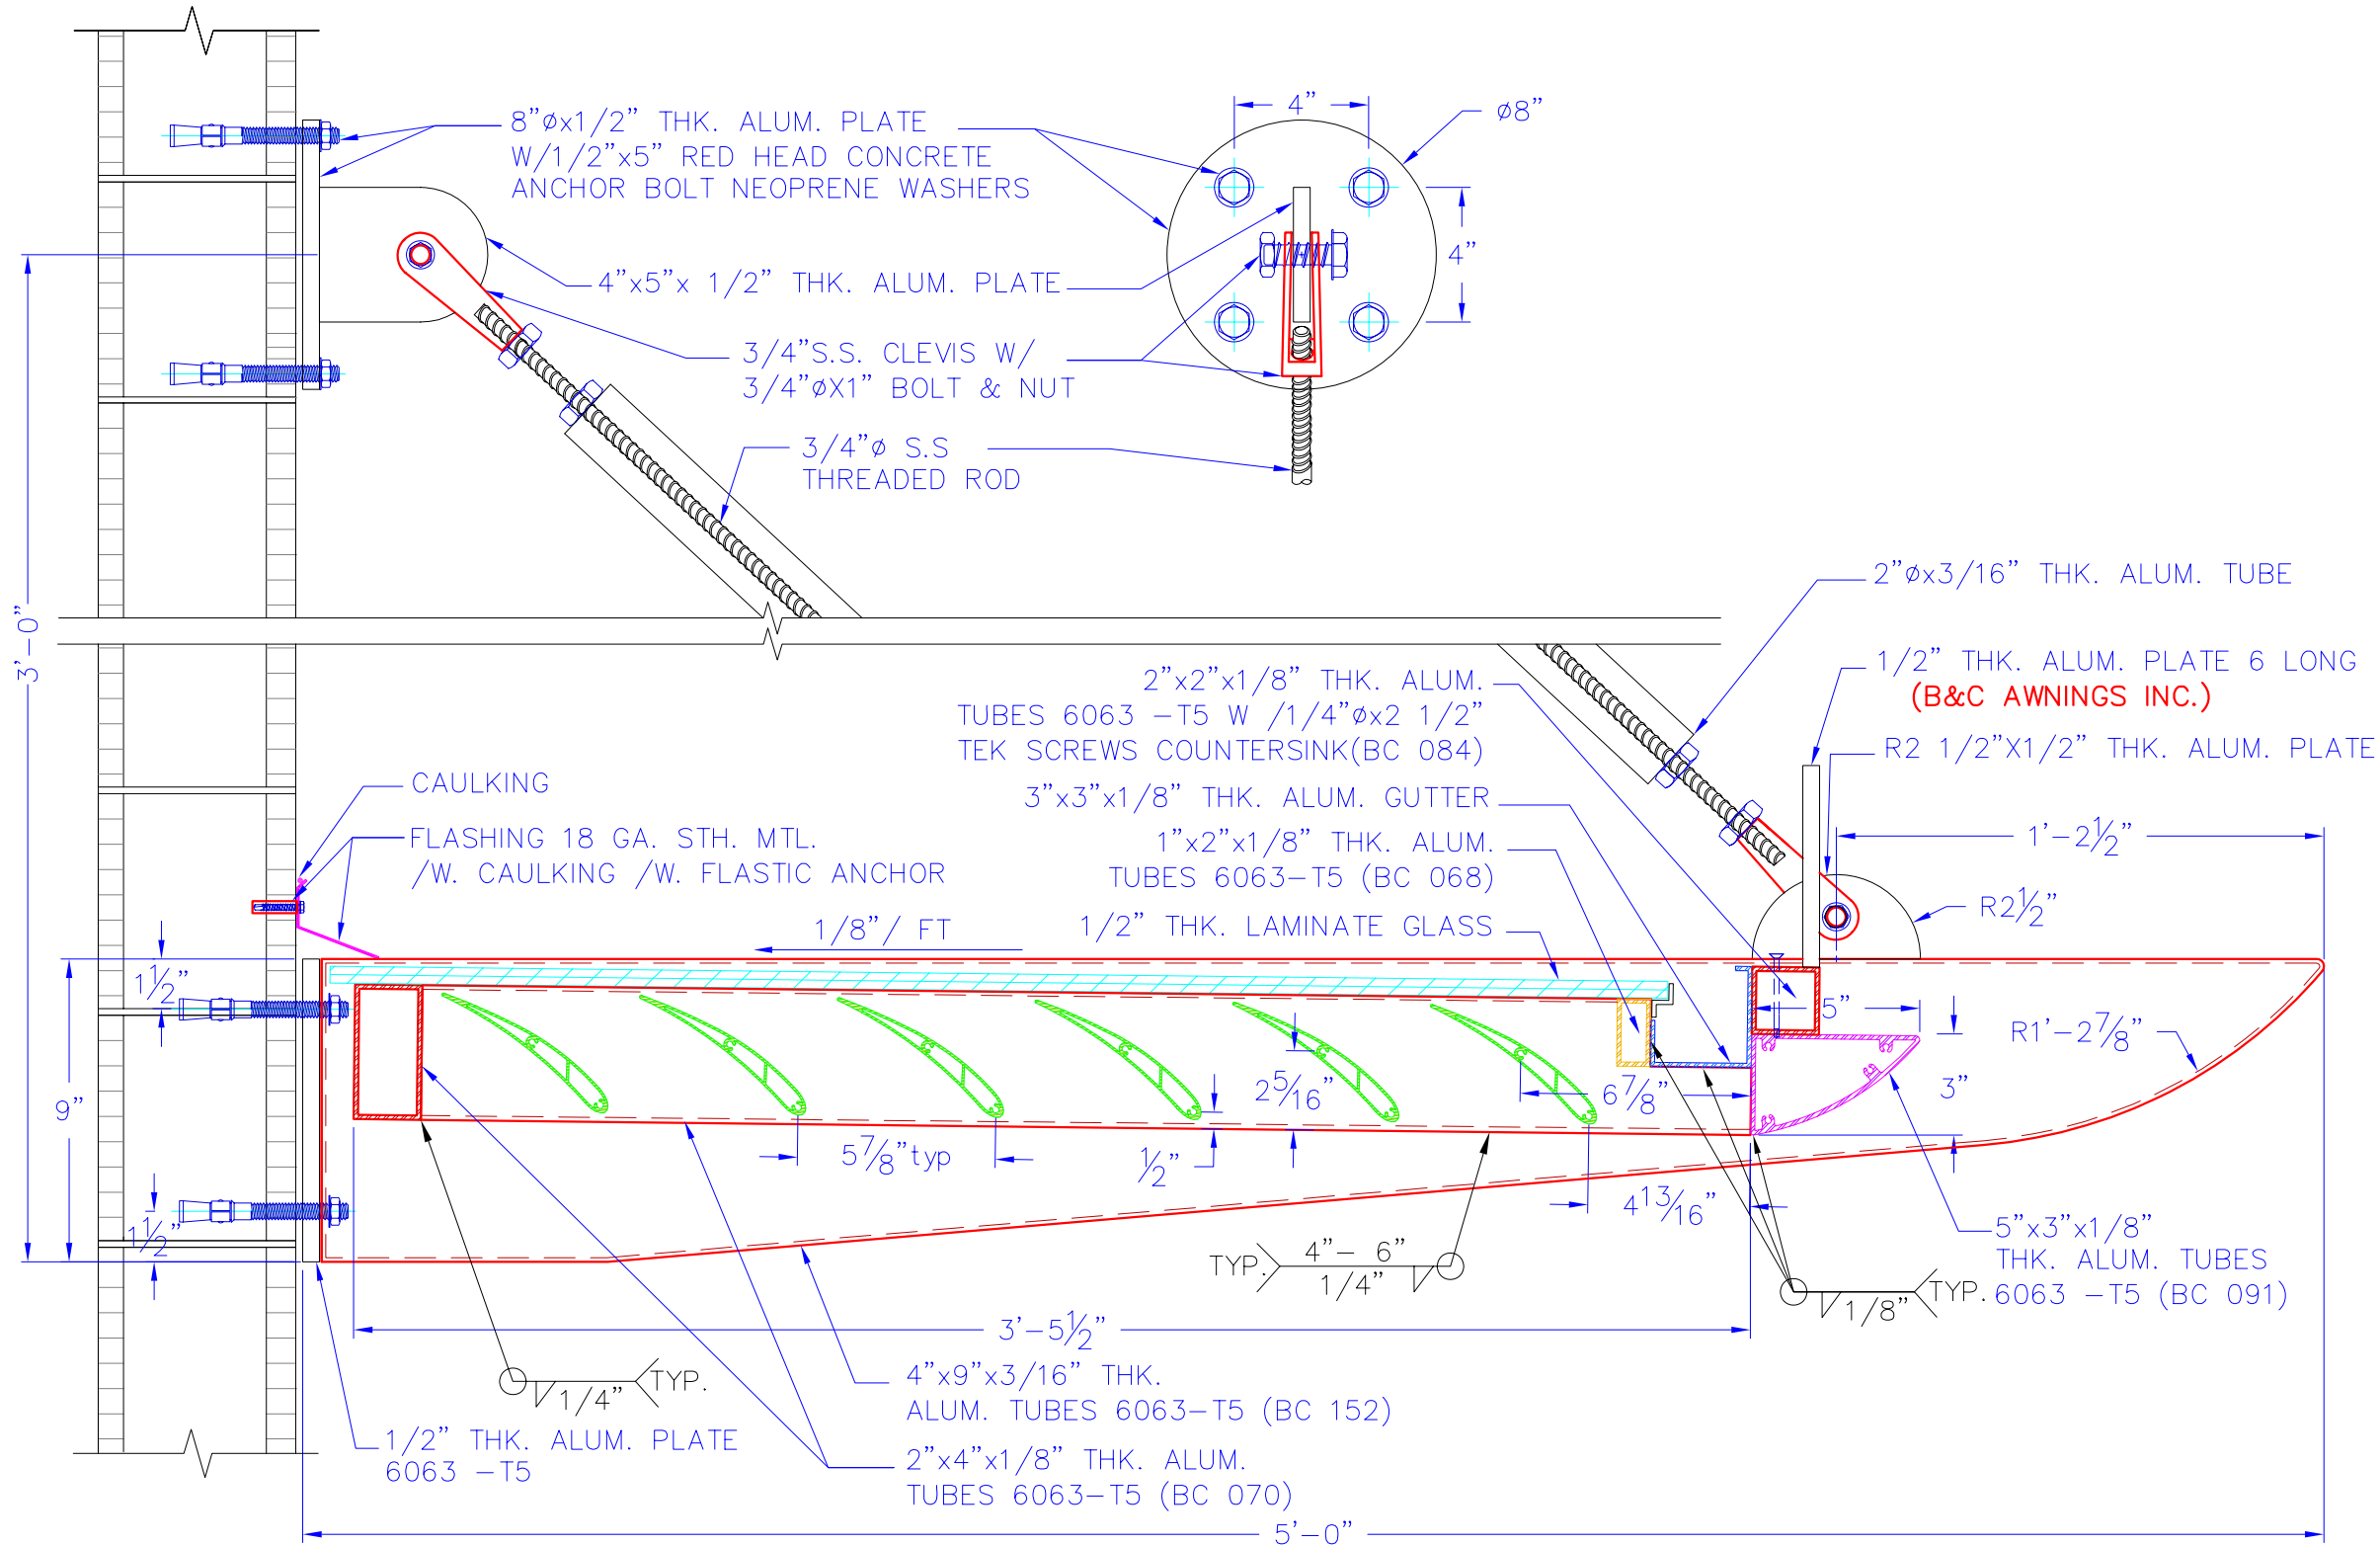 8"øx1/2" THK. ALUM. PLATE
W/1/2"x5" RED HEAD CONCRETE
ANCHOR BOLT NEOPRENE WASHERS
4"
ø8"
4"
4"x5"x 1/2" THK. ALUM. PLATE
3/4"S.S. CLEVIS W/
3/4"øX1" BOLT & NUT
3/4"ø S.S
THREADED ROD
3'-0"
2"øx3/16" THK. ALUM. TUBE
1/2" THK. ALUM. PLATE 6 LONG
(B&C AWNINGS INC.)
R2 1/2"X1/2" THK. ALUM. PLATE
2"x2"x1/8" THK. ALUM.
TUBES 6063 -T5 W /1/4"øx2 1/2"
TEK SCREWS COUNTERSINK(BC 084)
3"x3"x1/8" THK. ALUM. GUTTER
1"x2"x1/8" THK. ALUM.
TUBES 6063-T5 (BC 068)
1/2" THK. LAMINATE GLASS
CAULKING
FLASHING 18 GA. STH. MTL.
/W. CAULKING /W. FLASTIC ANCHOR
1/8"/ FT
1'-2 1/2"
R2 1/2"
1 1/2"
9"
1 1/2"
5"
R1'-2 7/8"
3"
2 5/16"
6 7/8"
5 7/8"typ
1/2"
4 13/16"
TYP.
4"- 6"
1/4"
1/8"
TYP.
5"x3"x1/8"
THK. ALUM. TUBES
6063 -T5 (BC 091)
3'-5 1/2"
1/4"
TYP.
4"x9"x3/16" THK.
ALUM. TUBES 6063-T5 (BC 152)
1/2" THK. ALUM. PLATE
6063 -T5
2"x4"x1/8" THK. ALUM.
TUBES 6063-T5 (BC 070)
5'-0"